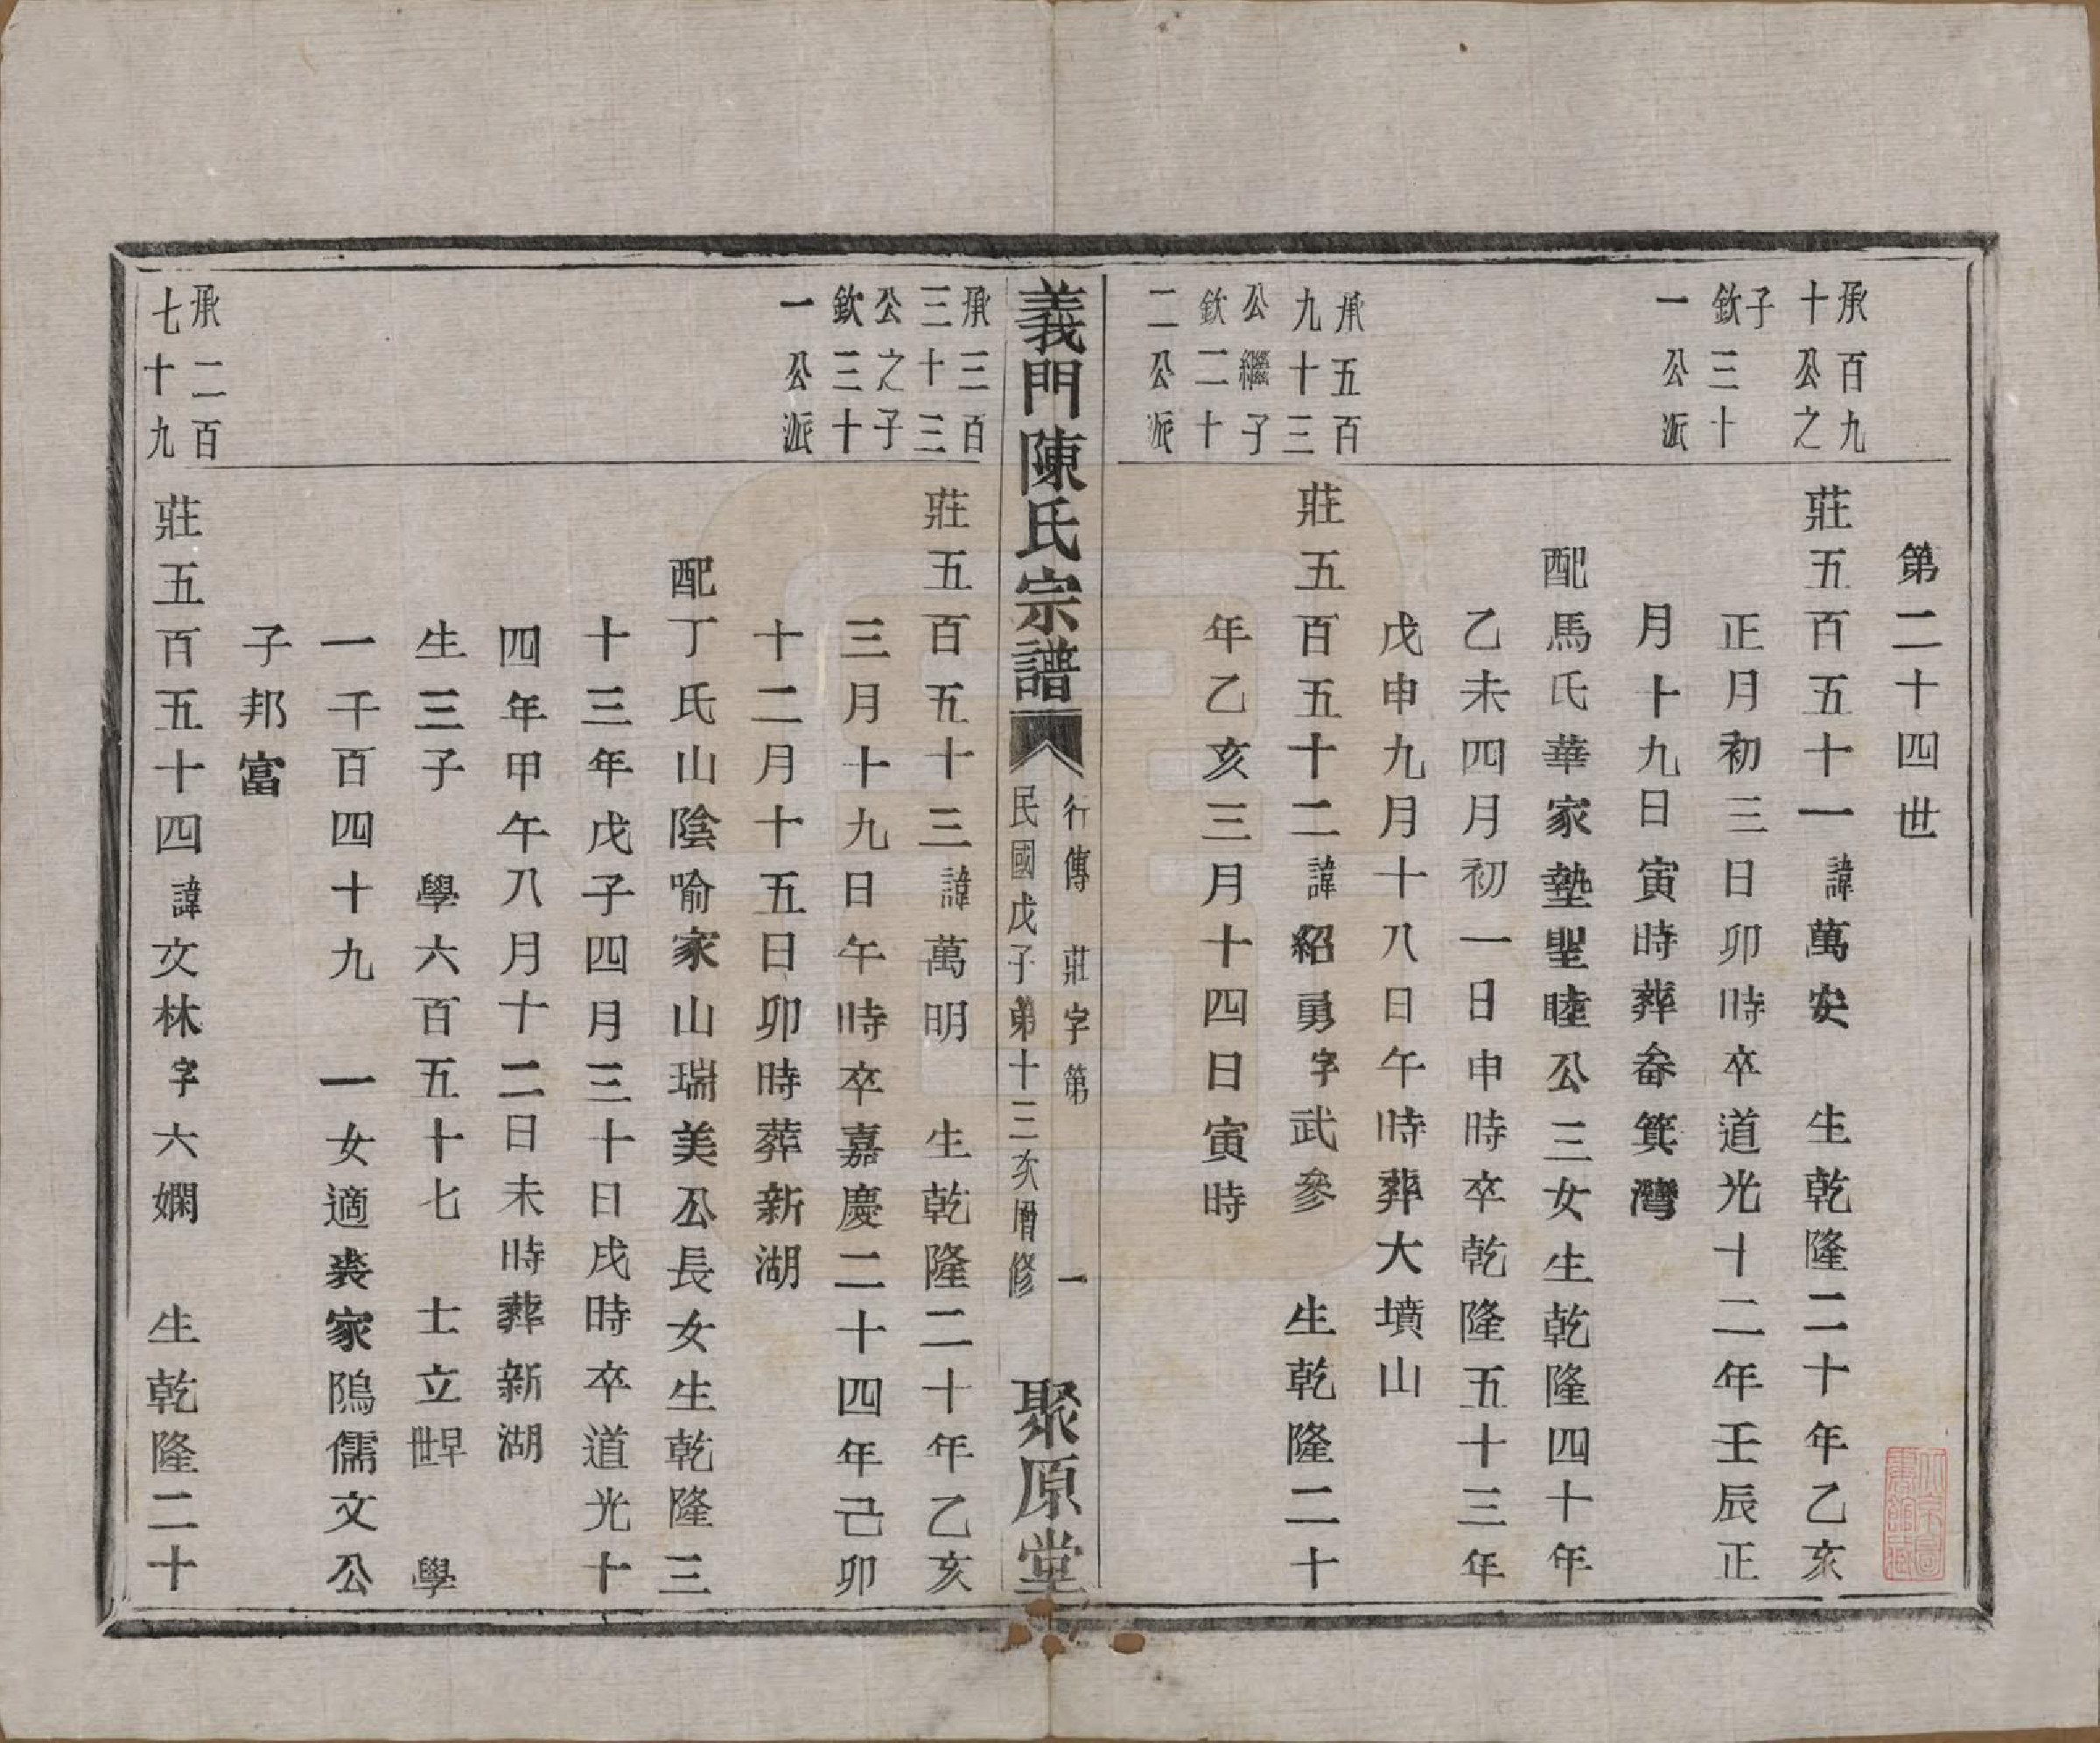 第二十四世
承百九
十公之
子
欽三十
一公派
莊五百五十一諱萬安　生乾隆二十年乙亥
正月初三日卯時卒道光十二年壬辰正
月十九日寅時葬畚箕灣
配馬氏華家墊聖睦公三女生乾隆四十年
乙未四月初一日申時卒乾隆五十三年
戊申九月十八日午時葬大墳山
承五百
九十三
公繼子
欽二十
二公派
莊五百五十二諱紹勇字武參　生乾隆二十
年乙亥三月十四日寅時
義門陳氏宗譜
行傳　莊字第　一
民國戊子第十三次增修
聚原堂
承三百
三十三
公之子
欽三十
一公派
莊五百五十三諱萬明　生乾隆二十年乙亥
三月十九日午時卒嘉慶二十四年己卯
十二月十五日卯時葬新湖
配丁氏山陰喻家山瑞美公長女生乾隆三
十三年戊子四月三十日戌時卒道光十
四年甲午八月十二日未時葬新湖
生三子　學六百五十七　士立早世　學
一千百四十九　一女適裘家隖儒文公
子邦富
承二百
七十九
莊五百五十四諱文林字六嫻　生乾隆二十